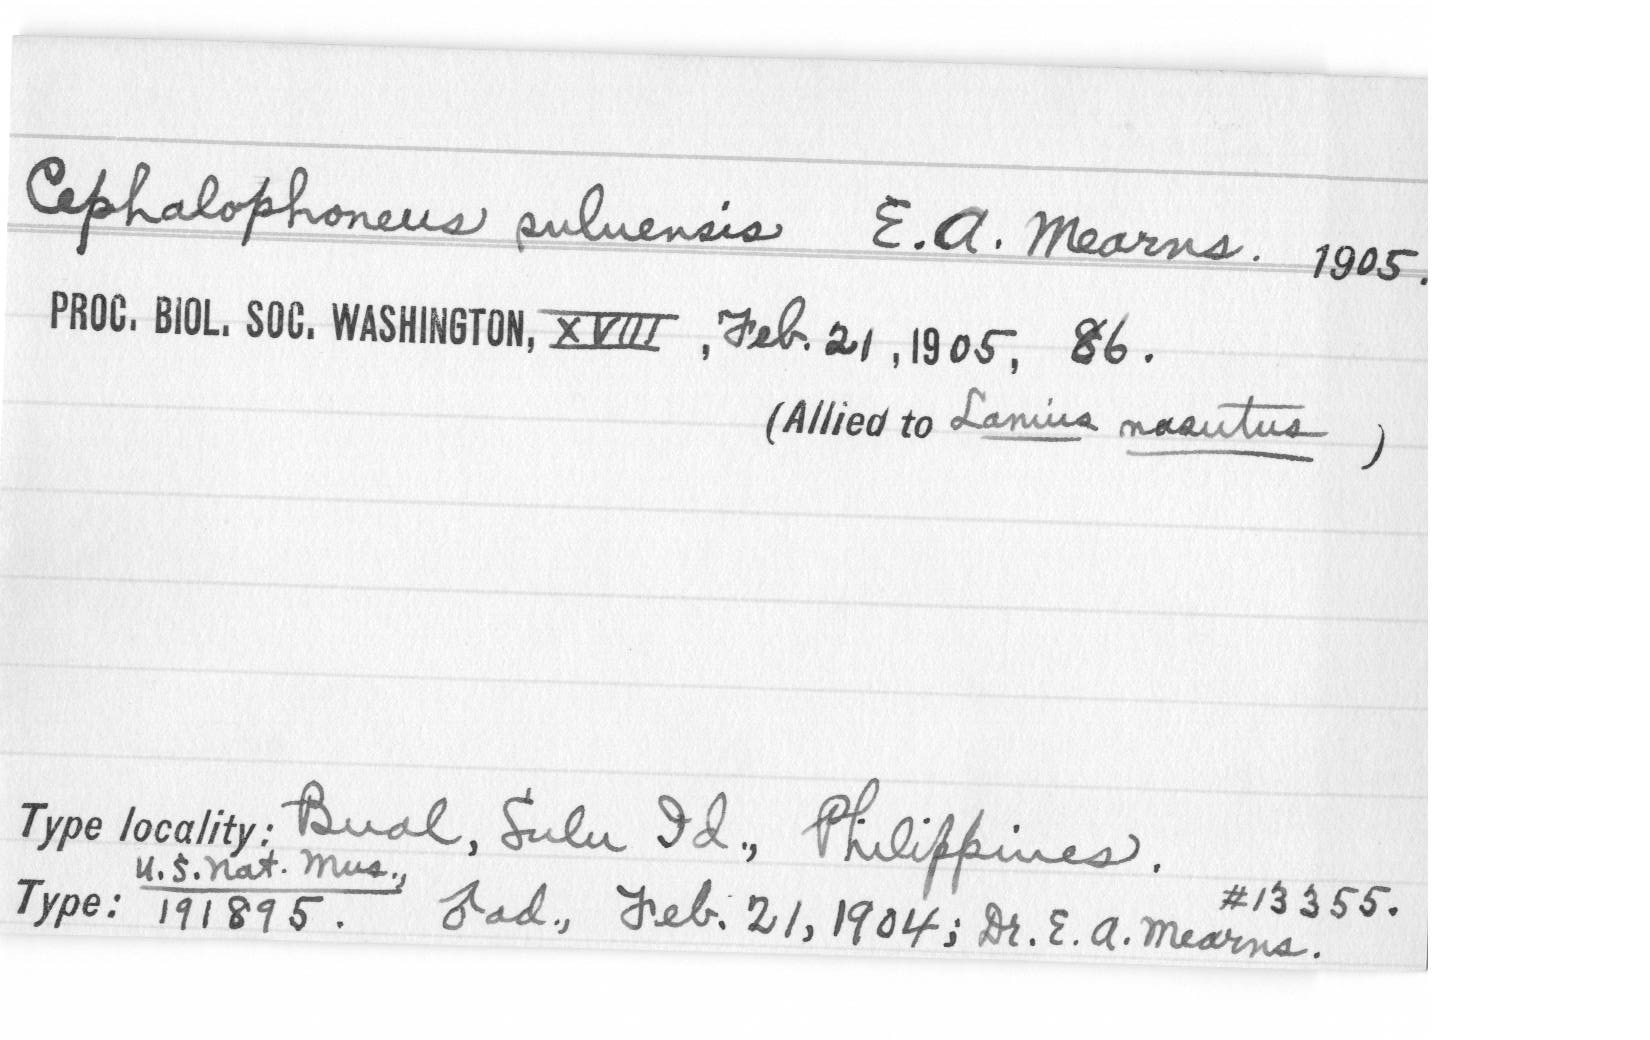 Cephalophoneus suluensis E. A. Mearns. 1905.
PROC. BIOL. SOC. WASHINGTON, XVIII, Feb. 21, 1905, 86.
(Allied to Lanius nasutus )
Type locality: Bual, Sulu Id., Philippines.
U.S. Nat. Mus., #13355.
Type: 191895. ad., Feb. 21, 1904; Dr. E. A. Mearns.